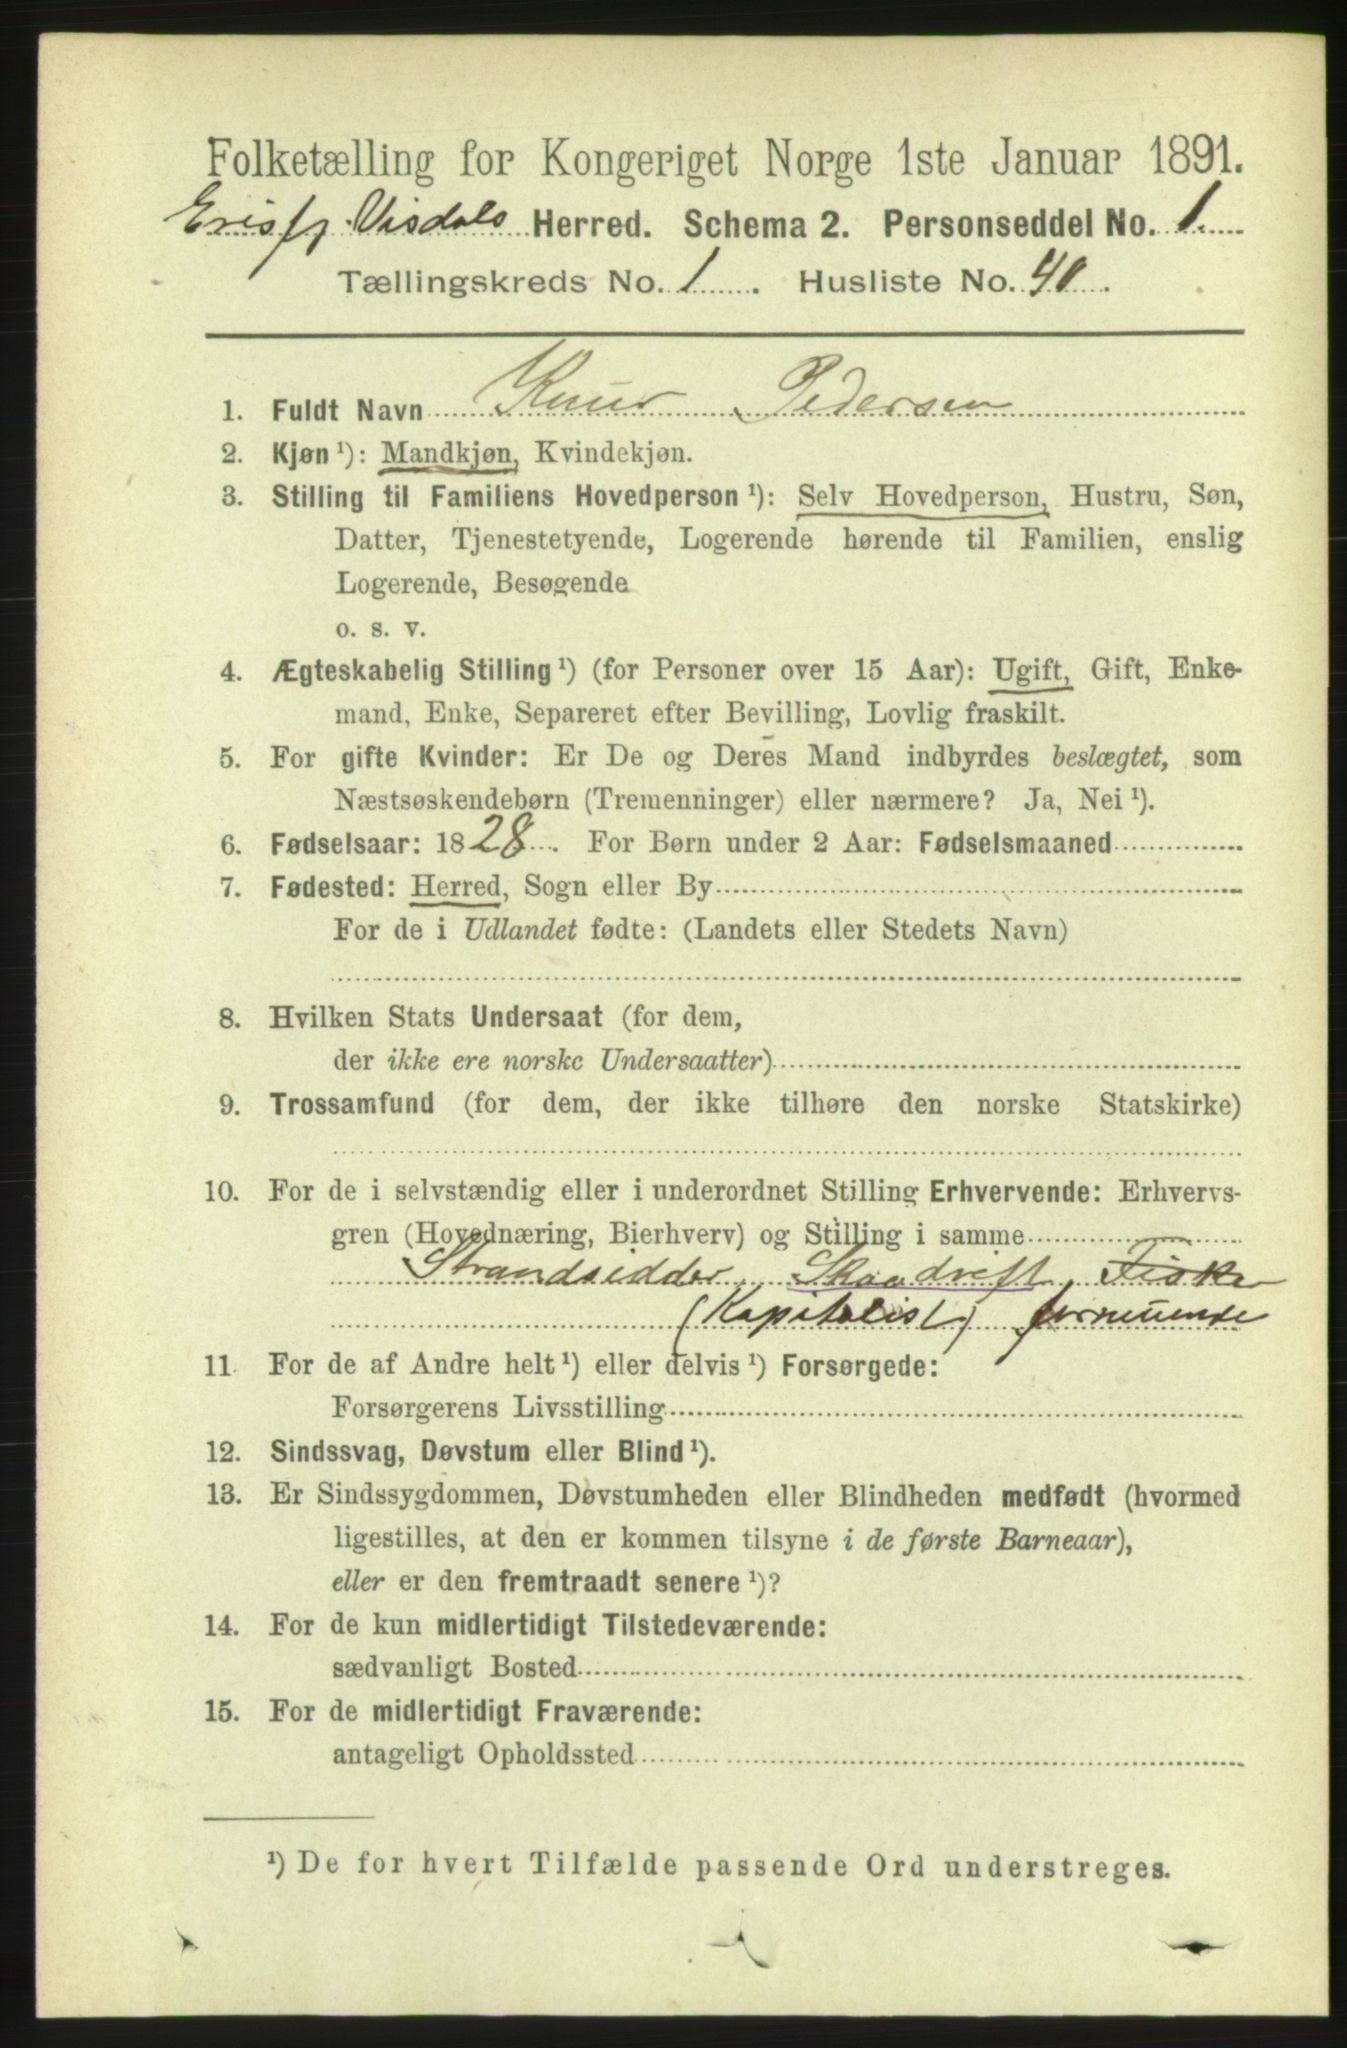 Folketælling for Kongeriget Norge 1ste Januar 1891.
Erisfj. Visdals Herred. Schema 2. Personseddel No. 1.
Tællingskreds No. 1. Husliste No. 40.
1. Fuldt Navn Knut Pedersen
2. Kjøn ¹): Mandkjøn, Kvindekjøn.
3. Stilling til Familiens Hovedperson ¹): Selv Hovedperson, Hustru, Søn,
Datter, Tjenestetyende, Logerende hørende til Familien, enslig
Logerende, Besøgende
o. s. v.
4. Ægteskabelig Stilling ¹) (for Personer over 15 Aar): Ugift, Gift, Enke-
mand, Enke, Separeret efter Bevilling, Lovlig fraskilt.
5. For gifte Kvinder: Er De og Deres Mand indbyrdes beslægtet, som
Næstsøskendebørn (Tremenninger) eller nærmere? Ja, Nei ¹).
6. Fødselsaar: 1828. For Børn under 2 Aar: Fødselsmaaned
7. Fødested: Herred, Sogn eller By
For de i Udlandet fødte: (Landets eller Stedets Navn)
8. Hvilken Stats Undersaat (for dem,
der ikke ere norske Undersaatter)
9. Trossamfund (for dem, der ikke tilhøre den norske Statskirke)
10. For de i selvstændig eller i underordnet Stilling Erhvervende: Erhvervs-
gren (Hovednæring, Bierhverv) og Stilling i samme
Strandsidder, Skaadrift, Fisker
(Kapitalist)
11. For de af Andre helt ¹) eller delvis ¹) Forsørgede:
Forsørgerens Livsstilling
12. Sindssvag, Døvstum eller Blind ¹).
13. Er Sindssygdommen, Døvstumheden eller Blindheden medfødt (hvormed
ligestilles, at den er kommen tilsyne i de første Barneaar),
eller er den fremtraadt senere ¹)?
14. For de kun midlertidigt Tilstedeværende:
sædvanligt Bosted
15. For de midlertidigt Fraværende:
antageligt Opholdssted
¹) De for hvert Tilfælde passende Ord understreges.